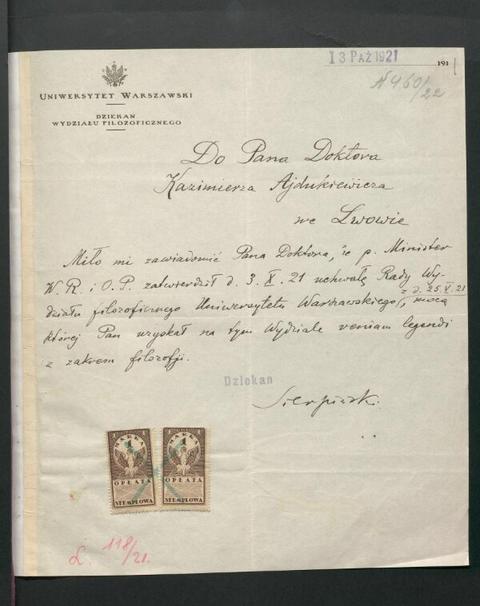 13 PAŹ 1921
191
N 460/22
UNIWERSYTET WARSZAWSKI
DZIEKAN
WYDZIAŁU FILOZOFICZNEGO
Do Pana Doktora
Kazimierza Ajdukiewicza
we Lwowie
Miło mi zawiadomić Pana Doktora, że p. Minister
W. R. i O. P. zatwierdził d. 3. X. 21 uchwałę Rady Wy-
działu filozoficznego Uniwersytetu Warszawskiego z d. 25. V. 21, mocą
której Pan uzyskał na tym Wydziale veniam legendi
z zakresu filozofji.
Dziekan
Sierpiński
MARKA
1 1
OPŁATA
STEMPLOWA
MARKA
1 1
OPŁATA
STEMPLOWA
L. 118/21.